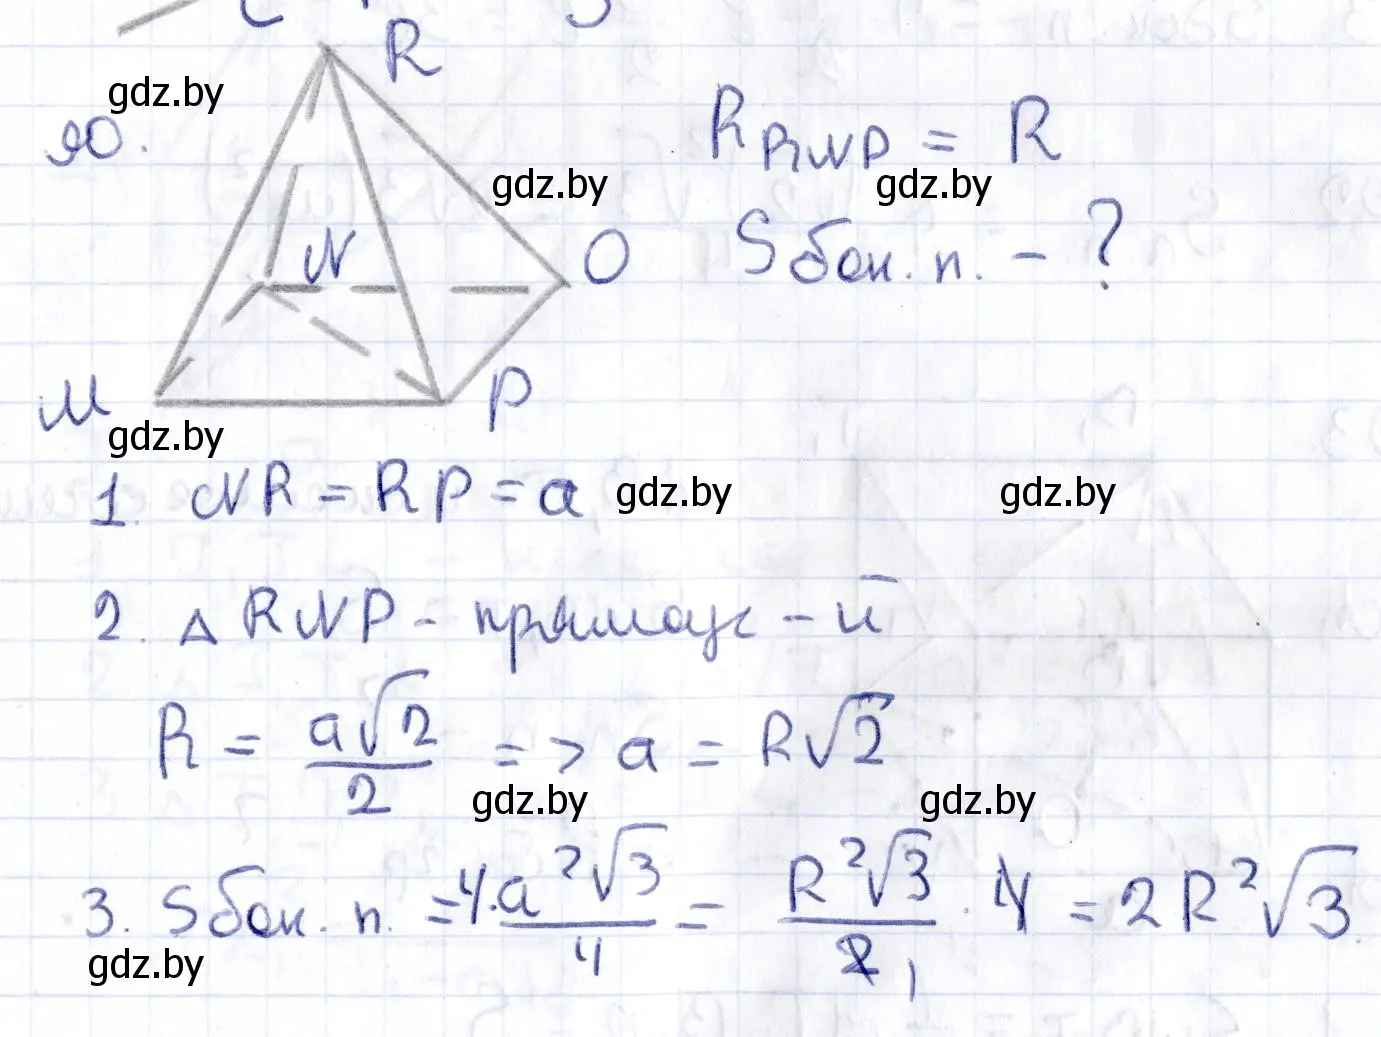 R
90.
R_{RNP} = R
N
O
S бок. п. - ?
M
P
1. NR = RP = a
2. △ RNP - прямоуг - й
R = \frac{a\sqrt{2}}{2} => a = R\sqrt{2}
3. S бок. п. = 4 \cdot \frac{a^2\sqrt{3}}{4} = \frac{R^2\sqrt{3}}{2} \cdot 4 = 2R^2\sqrt{3}
gdz.by
gdz.by
gdz.by
gdz.by
gdz.by
gdz.by
gdz.by
gdz.by
gdz.by